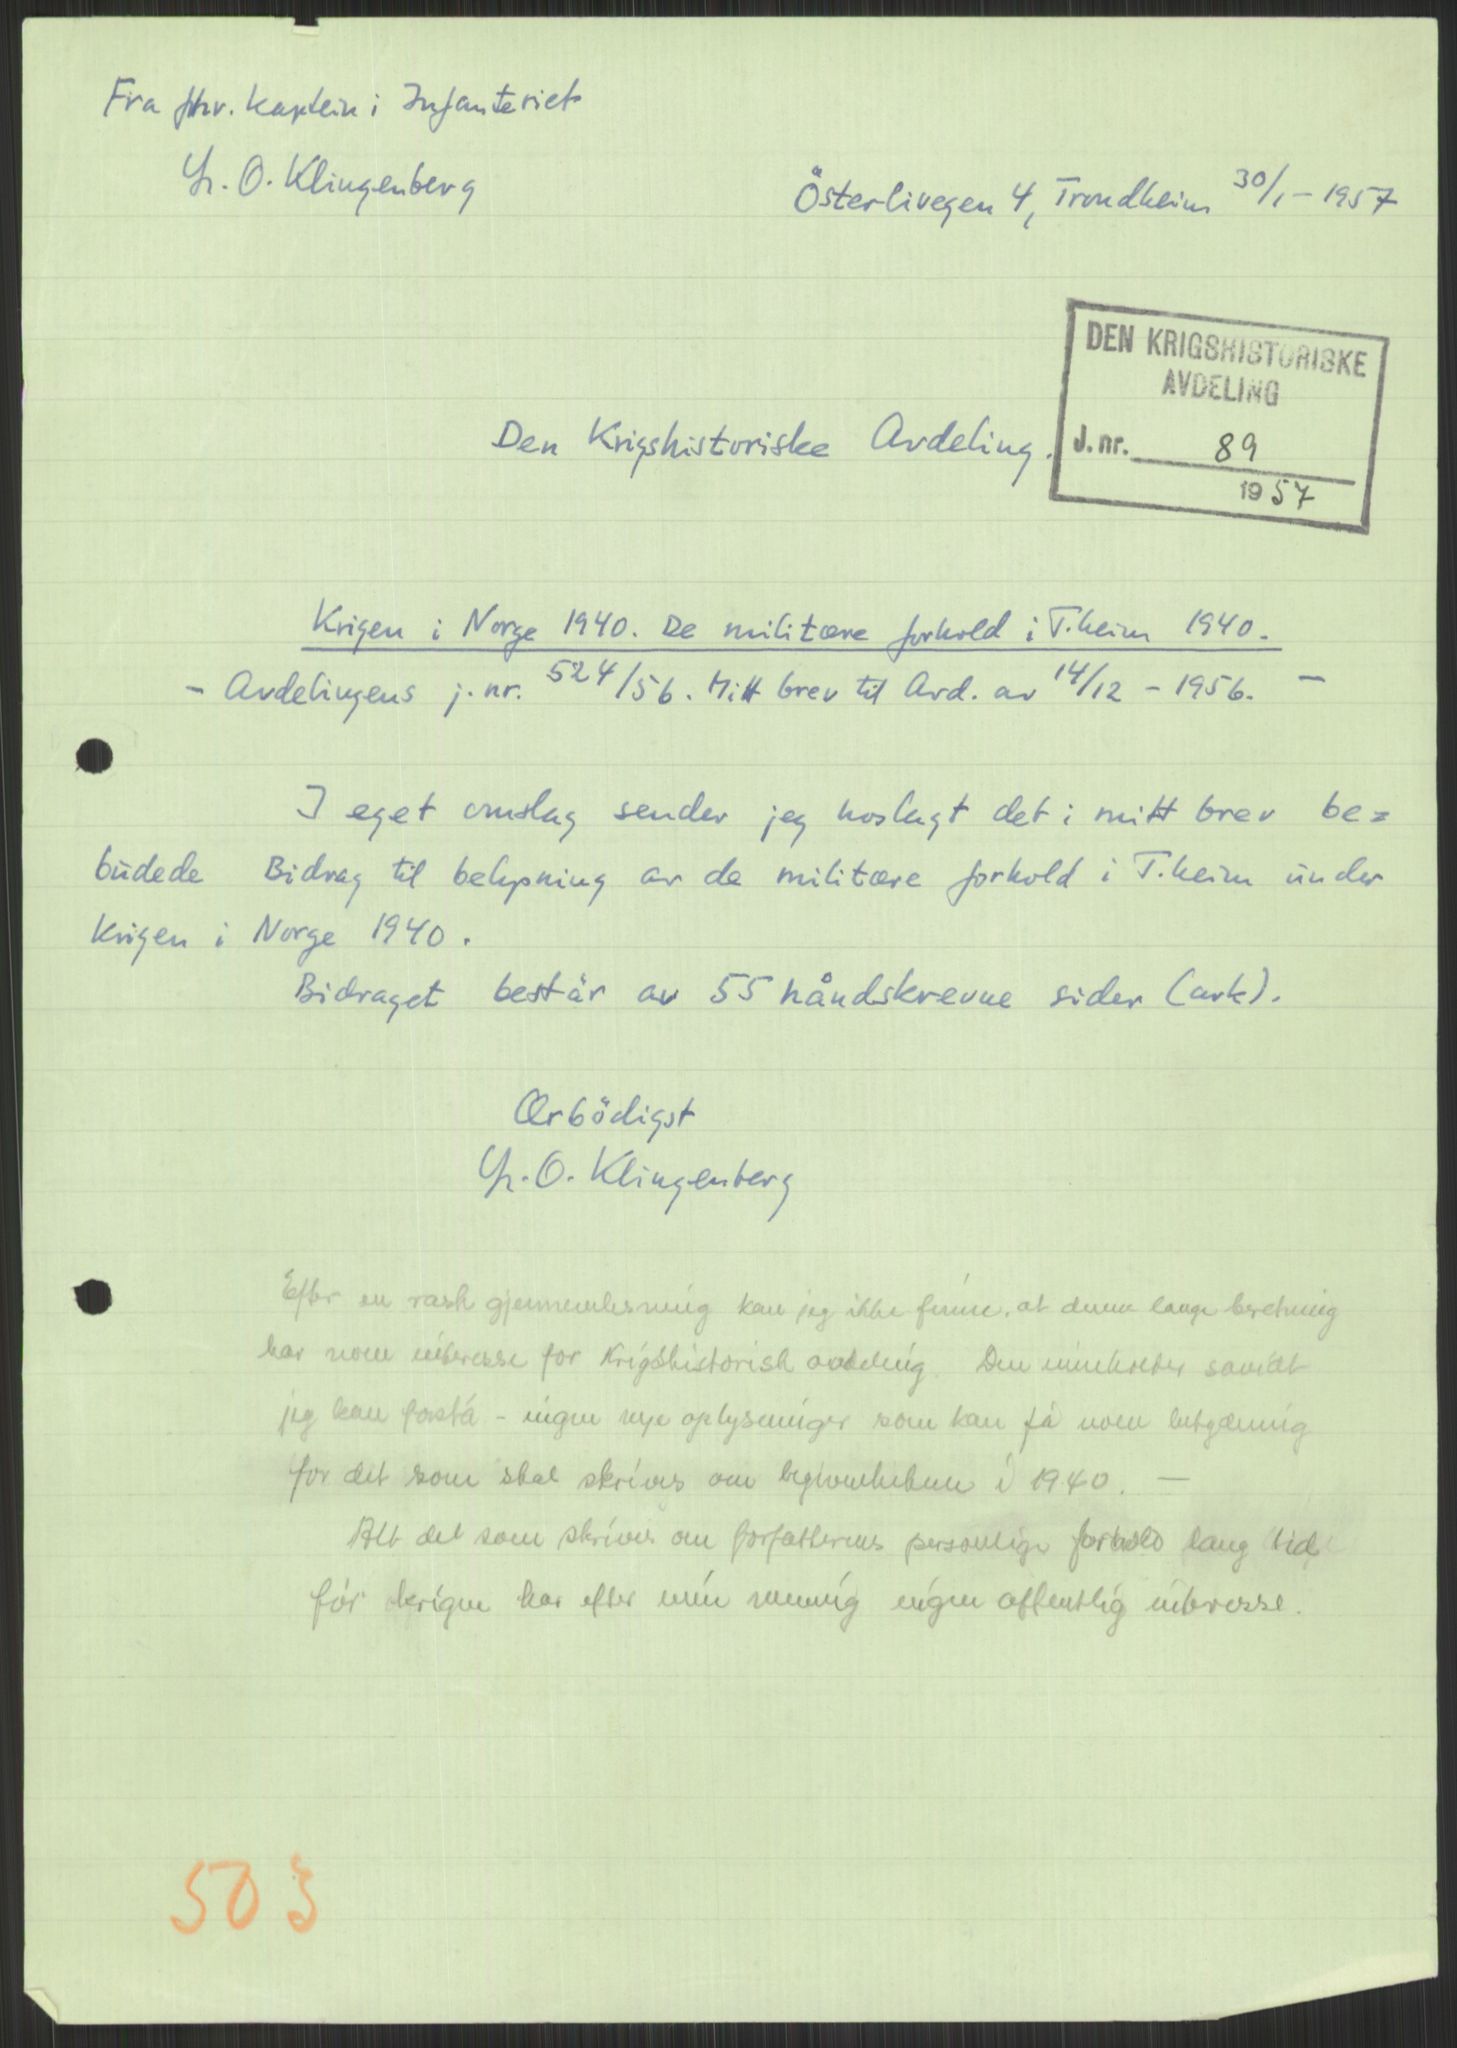 Fra fhv. kaptein i Infanteriet
O. Klingenberg
Österlivegen 4, Trondheim 30/1 - 1957
DEN KRIGSHISTORISKE
AVDELING
J. nr. 89
1957
Den Krigshistoriske Avdeling.
Krigen i Norge 1940. De militære forhold i T.heim 1940.
- Avdelingens j. nr. 524/56. Mitt brev til Avd. av 14/12 - 1956. -
I eget omslag sender jeg hoslagt det i mitt brev be=
budede Bidrag til belysning av de militære forhold i T.heim under
krigen i Norge 1940.
Bidraget består av 55 håndskrevne sider (ark).
Ærbödigst
O. Klingenberg
Efter en rask gjennemlesning kan jeg ikke finne, at denne lange beretning
har noen interesse for Krigshistorisk avdeling. Den inneholder såvidt
jeg kan forstå - ingen nye oplysninger som kan få noen betydning
for det som skal skrives om begivenhetene i 1940. -
Alt det som skrives om forfatterens personlige forhold lang tid
før krigen har efter min mening ingen offentlig interesse.
503